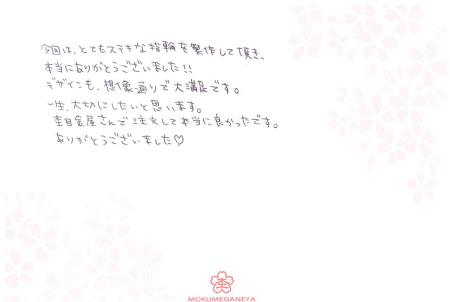 今回は、とてもステキな指輪を製作して頂き、
本当にありがとうございました!!
デザインも、想像通りで大満足です。
一生、大切にしたいと思います。
杢目金屋さんで注文して本当に良かったです。
ありがとうございました♡
杢
MOKUMEGANEYA